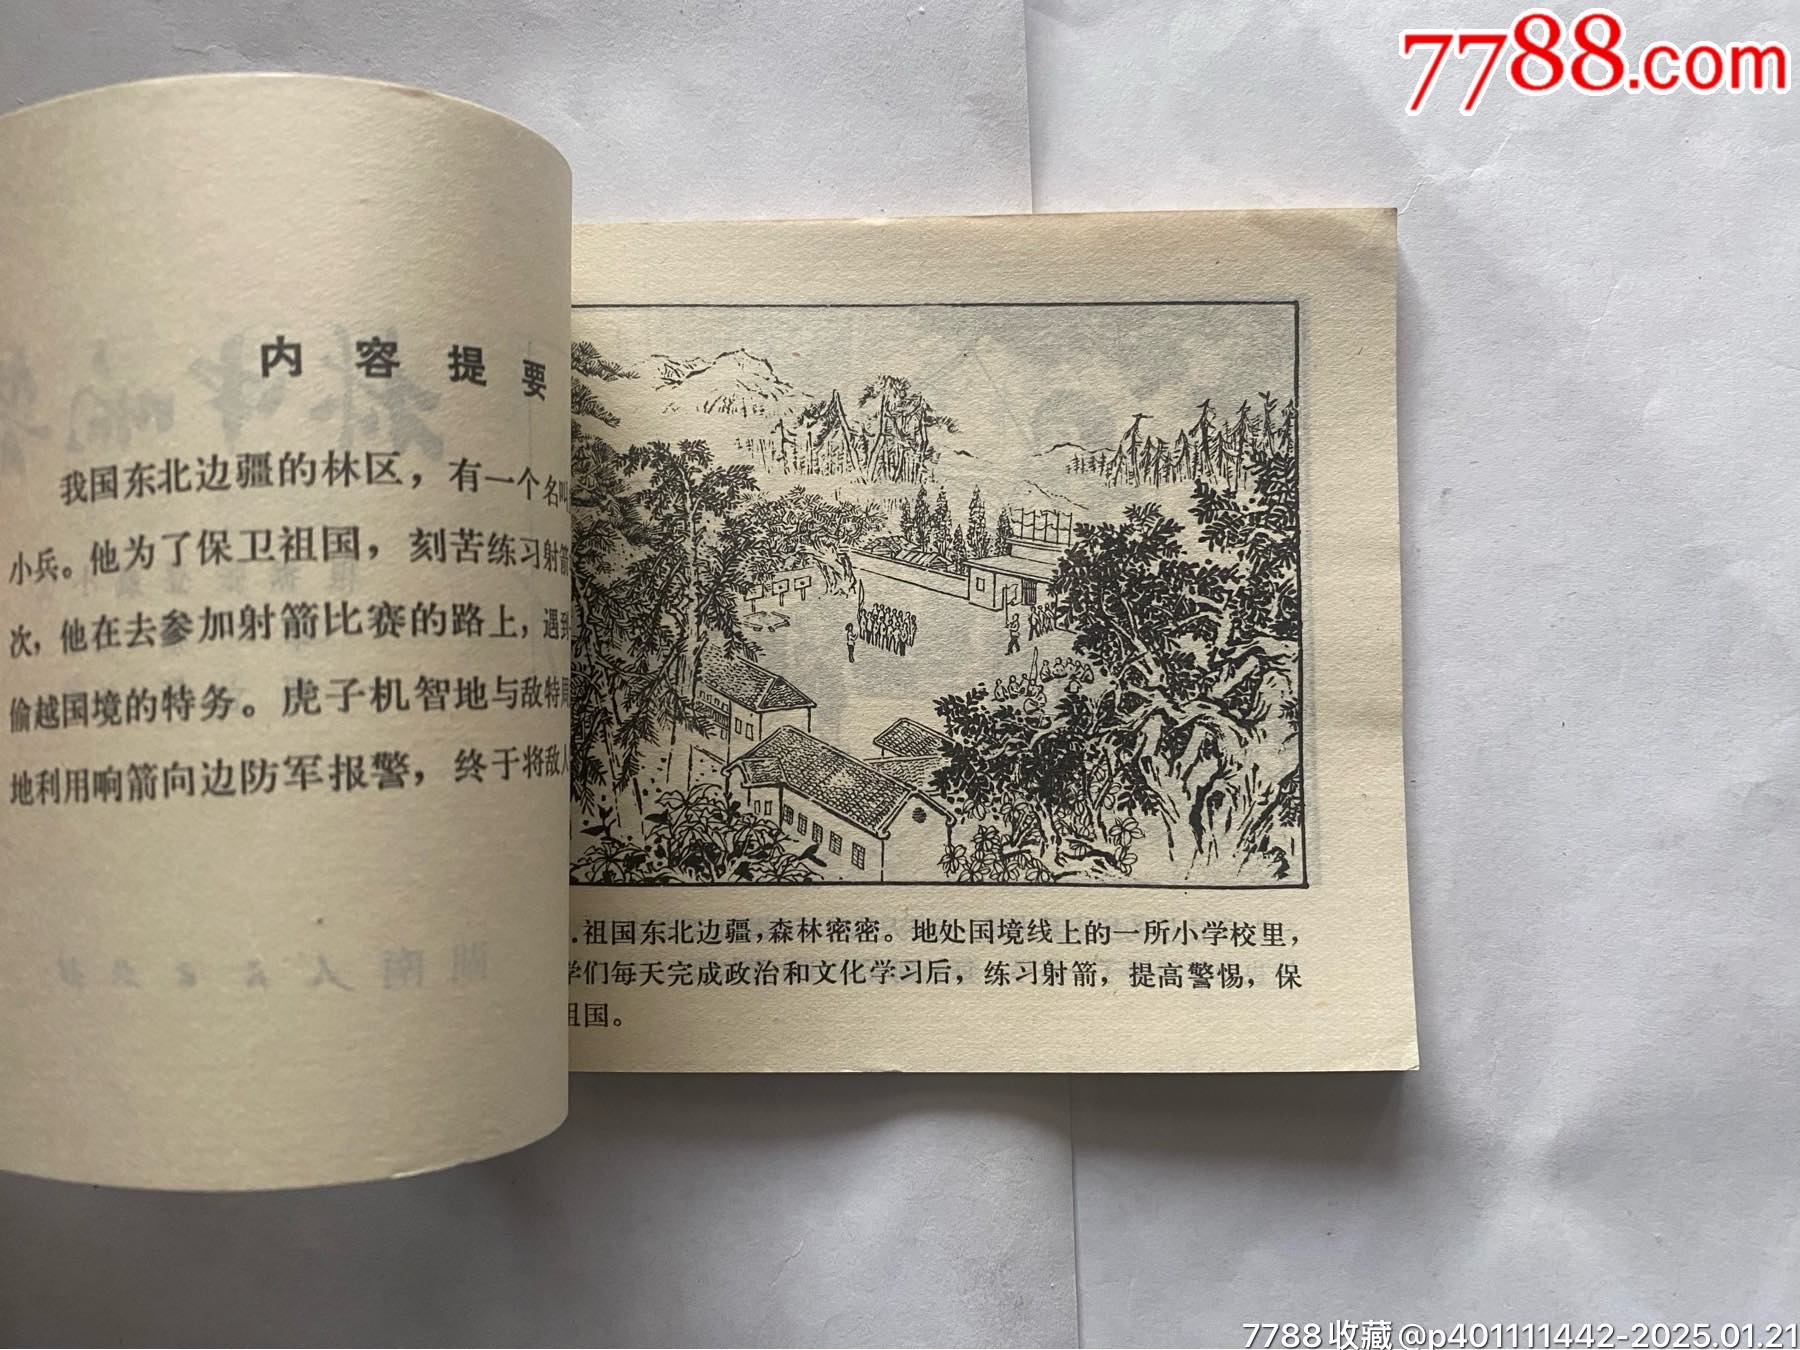 7788.com
内容提要
我国东北边疆的林区，有一个名叫
小兵。他为了保卫祖国，刻苦练习射箭
次，他在去参加射箭比赛的路上，遇到
偷越国境的特务。虎子机智地与敌特周
地利用响箭向边防军报警，终于将敌人
.祖国东北边疆，森林密密。地处国境线上的一所小学校里，
学们每天完成政治和文化学习后，练习射箭，提高警惕，保
祖国。
7788收藏@p401111442-2025.01.21